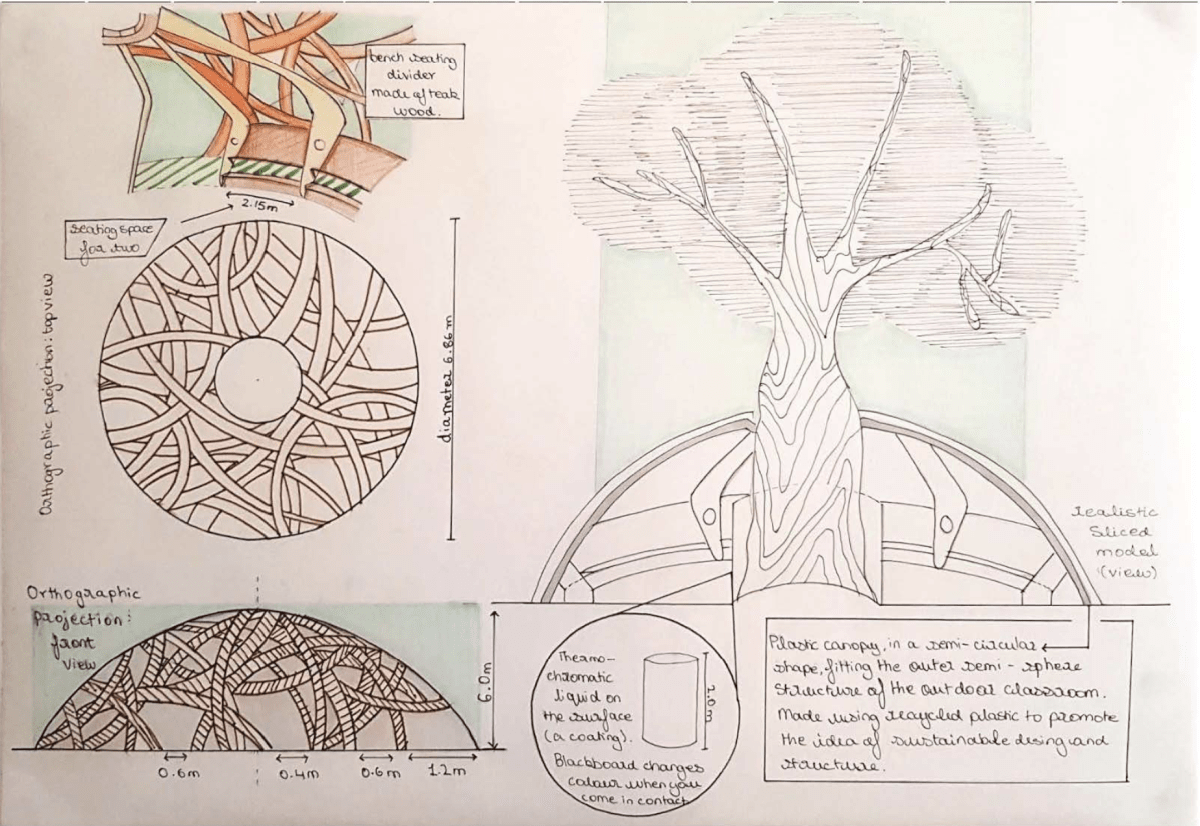 bench seating
divider
made of teak
wood.
2.15m
seating space
for two
Orthographic projection: top view
diameter 6.86 m
realistic
Sliced
model
(view)
Orthographic
projection:
front
view
6.0m
0.6m
0.4m
0.6m
1.2m
Thermo-
chromatic
liquid on
the surface
(a coating).
2.0m
Blackboard changes
colour when you
come in contact
Plastic canopy, in a semi-circular
shape, fitting the outer semi-sphere
structure of the outdoor classroom.
Made using recycled plastic to promote
the idea of sustainable desing and
structure.